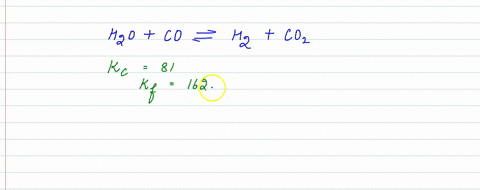 H₂O + CO ⇌ H₂ + CO₂
Kc = 81
Kf = 162.